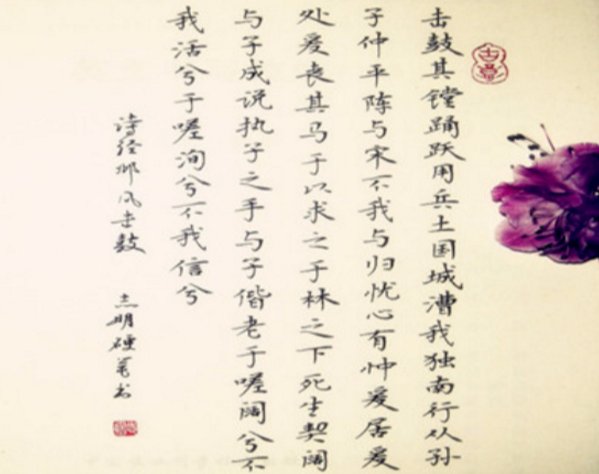 击鼓其镗踊跃用兵土国城漕我独南行从孙
子仲平陈与宋不我与归忧心有忡爱居爱
处爱丧其马于以求之于林之下死生契阔
与子成说执子之手与子偕老于嗟阔兮不
我活兮于嗟洵兮不我信兮
诗经邶风击鼓 志明硬笔书